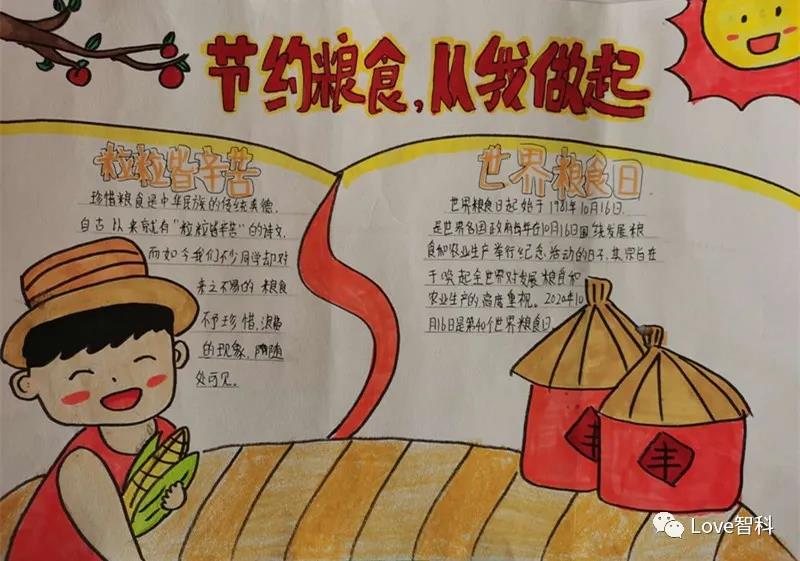 节约粮食，从我做起
粒粒皆辛苦
珍惜粮食是中华民族的传统美德，
自古以来就有“粒粒皆辛苦”的诗文，
而如今我们不少同学却对
来之不易的粮食
不予珍惜，浪费
的现象，随
处可见。
世界粮食日
世界粮食日起始于1981年10月16日，
是世界各国政府每年在10月16日围绕发展粮
食和农业生产举行纪念活动的日子，其宗旨在
于唤起全世界对发展粮食和
农业生产的高度重视。2020年10
月16日是第40个世界粮食日。
丰
丰
Love智科